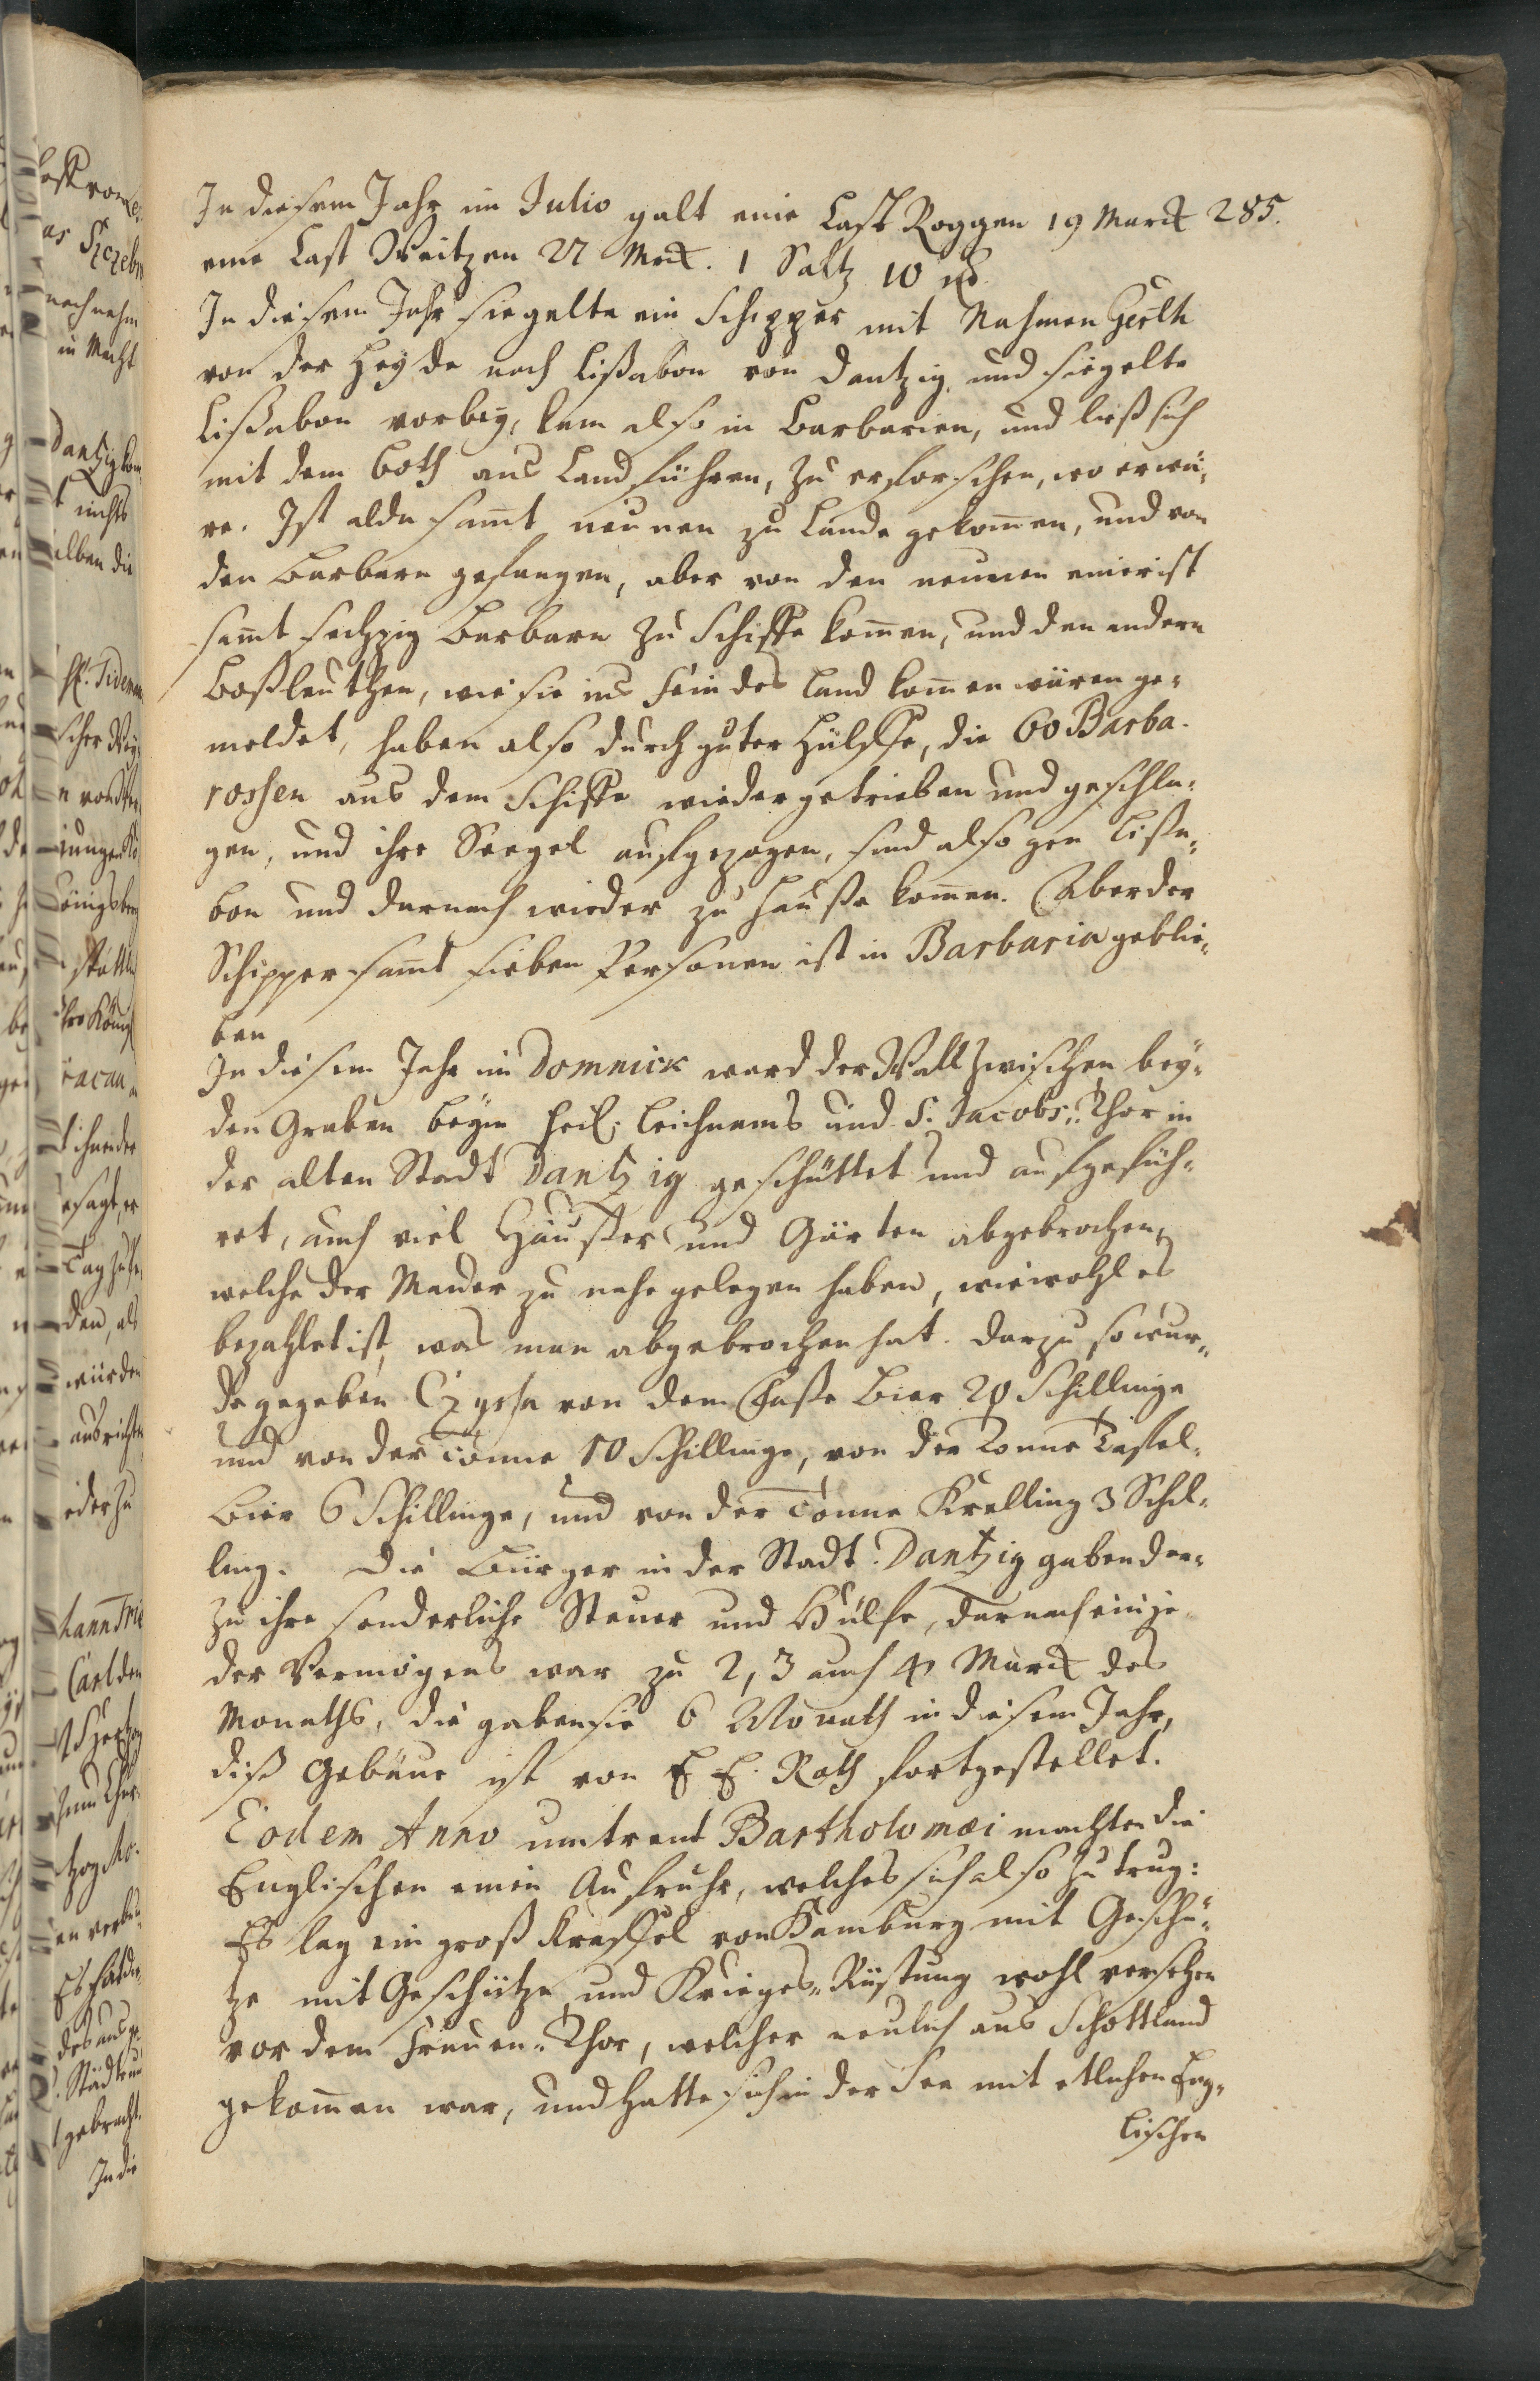 285.
In diesem Jahr im Julio galt eine Last Roggen 19 Marck
eine Last Weitzen 27 Mrck. 1 Saltz 10
In diesem Jahr siegelte ein Schipper mit Nahmen Gerth
von der Heyde nach Lißabon von Dantzig, und siegelte
Lißabon vorbey, kam also in Barbarien, und ließ sich
mit dem Both ans Land führen, zu erforschen, wo er wä-
re. Ist alda samt neunen zu Lande gekommen, und von
den Barbarn gefangen, aber von den neunen einer ist
samt sechzig Barbarn zu Schiffe kommen, und den andern
Boßleuthen, wie sie ins Feindes Land kommen wären ge-
meldet, haben also durch guter Hülffe, die 60 Barba-
rossen aus dem Schiffe wieder getrieben und geschla-
gen, und ihre Seegel aufgezogen, sind also gen Lißa-
bon und darnach wieder zu Hauße kommen. Aber der
Schipper samt sieben Personen ist in Barbaria geblie-
ben
In diesem Jahr im Domnick ward der Wall zwischen bey-
den Graben beym Heil. Leichnams und S. Jacobs-Thor in
der alten Stadt Dantzig geschüttet und aufgefüh-
ret, auch viel Häußer und Gärten abgebrochen,
welche der Mauer zu nahe gelegen haben, wiewohl es
bezahlet ist, was man abgebrochen hat. Darzu so wur-
de gegeben Czyse von dem Faße Bier 20 Schillinge
und von der Tonne 10 Schillinge, von der Tonne Taffel-
Bier 6 Schillinge, und von der Tonne Krelling 3 Schil-
ling. Die Bürger in der Stadt Dantzig gaben dar-
zu ihre sonderliche Steuer und Hülfe, darnach ein je-
der Vermögens war zu 2, 3 auch 4 Marck des
Monaths, die gaben sie 6 Monath in diesem Jahr,
diß Gebäue ist von E E. Rath fortgestellet.
Eodem Anno umtrent Bartholomæi machten die
Englischen einen Aufruhr, welches sich also zu trug:
Es lag ein groß Kraffel von Hamburg mit Geschü-
tze mit Geschütze und Krieges-Rüstung wohl versehen
vor dem Frauen-Thor, welcher neulich aus Schottland
gekommen war, und hatte sich in der See mit etlichen Eng-
lischen